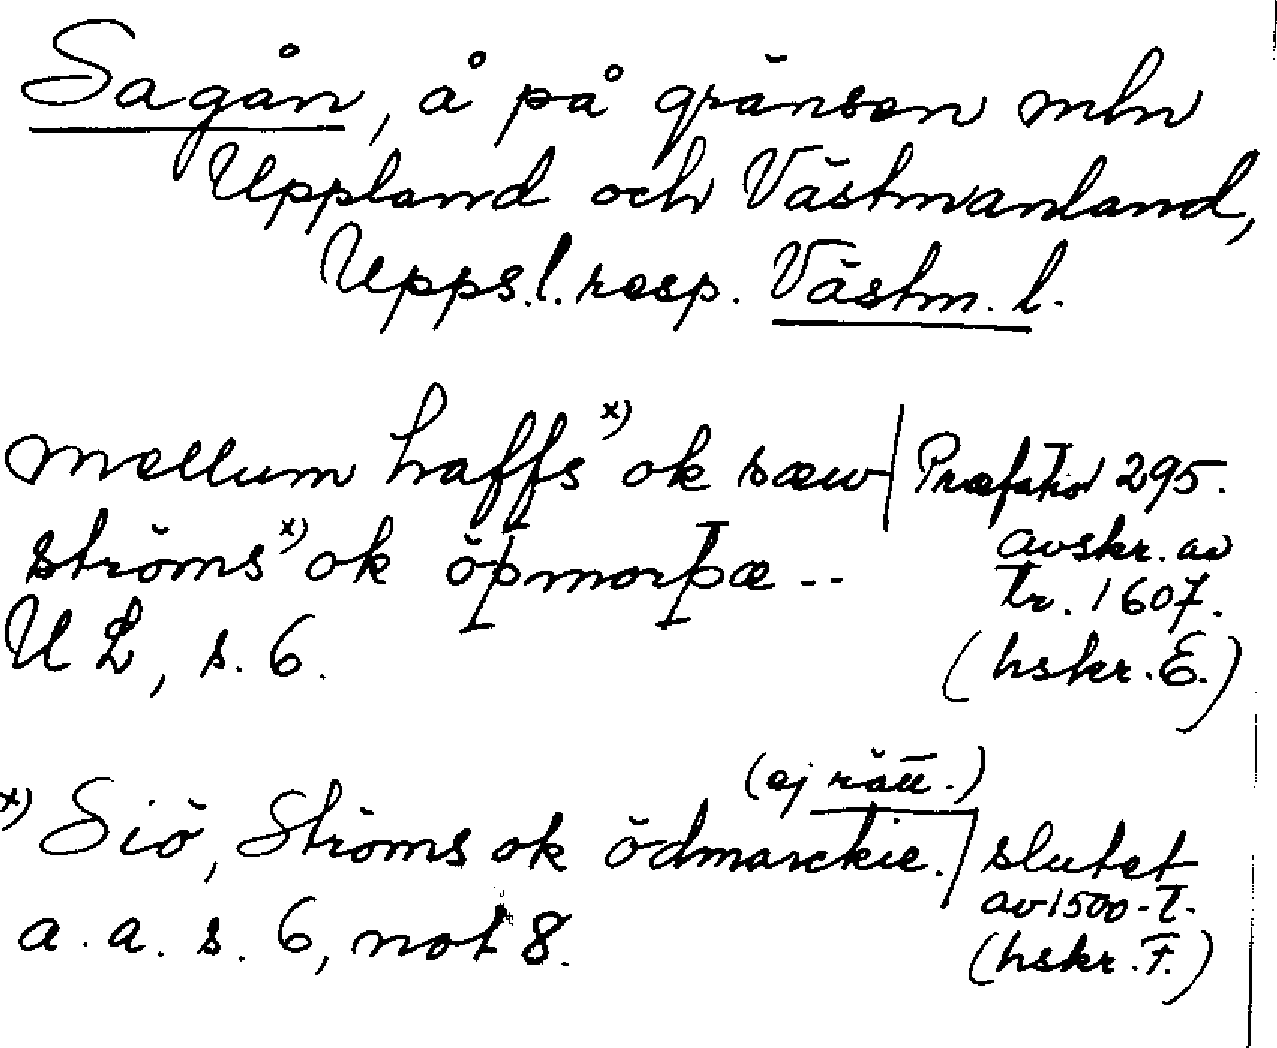 Sagån, å på gränsen mln
Uppland och Västmanland,
Upps.l. resp. Västm. l.
mellum haffs x) ok sæw
ströms x) ok öþmorþæ --
UL, s. 6.
Præfatio 1295.
avskr. av
tr. 1607.
(hskr. E.)
(ej rätt.)
x) Siö, Ströms ok ödmarckie.
a. a. s. 6, not 8.
slutet
av 1500-t.
(hskr. F.)